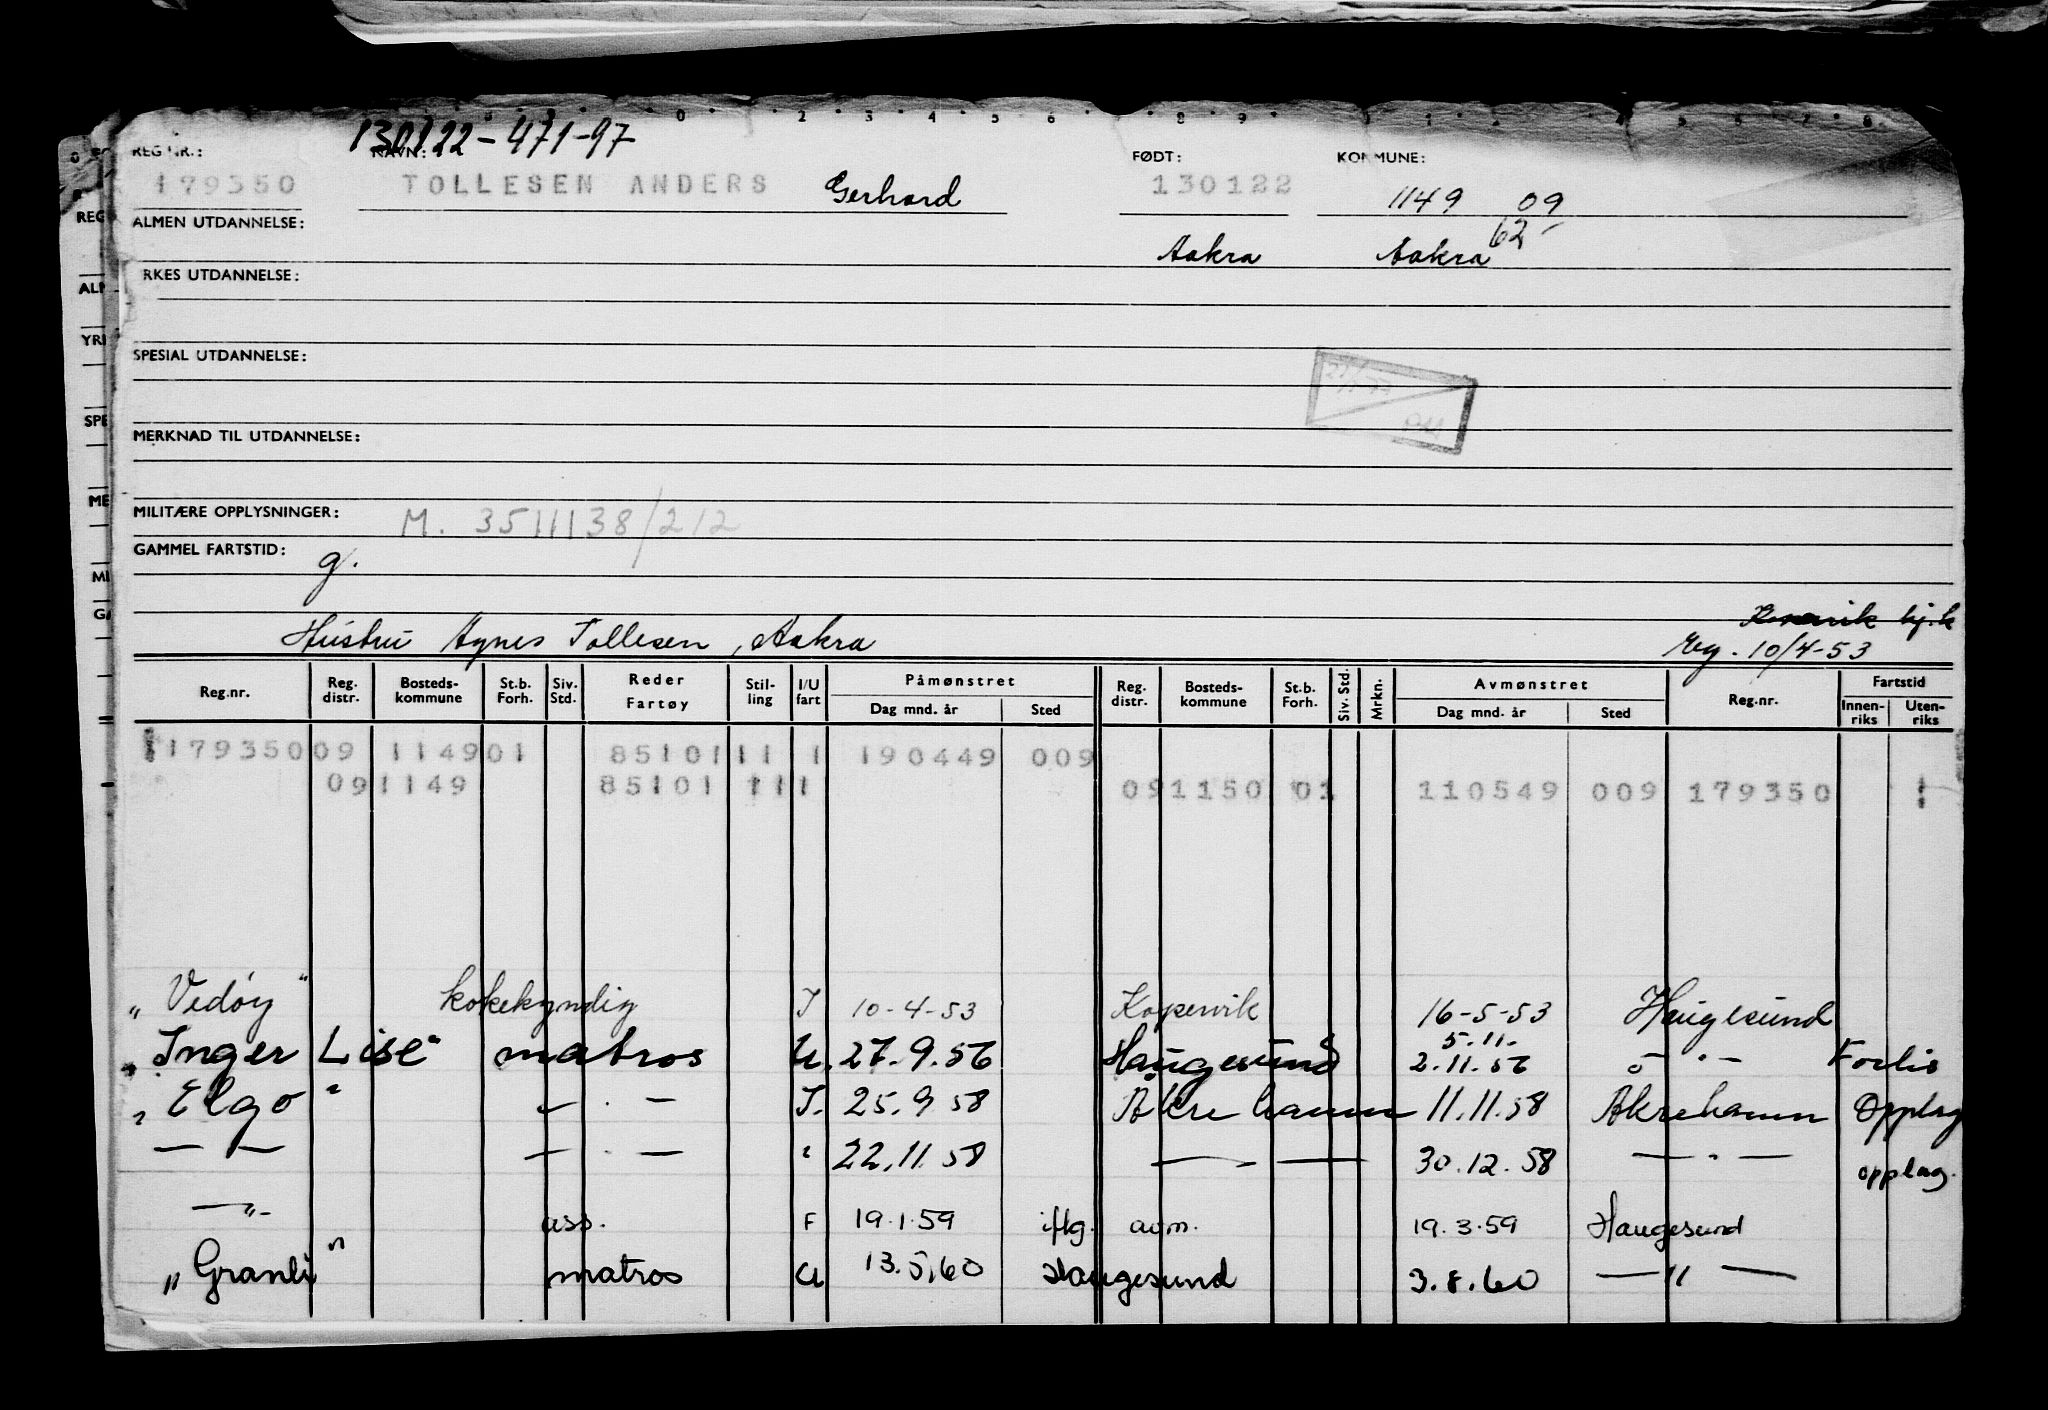 130122-471-97
REG NR.: NAVN: FØDT: KOMMUNE:
179350 TOLLESEN ANDERS Gerhard 130122 1149 09
ALMEN UTDANNELSE: 62
Aakra Aakra
RKES UTDANNELSE:
SPESIAL UTDANNELSE:
MERKNAD TIL UTDANNELSE:
MILITÆRE OPPLYSNINGER: M. 3511138/212
GAMMEL FARTSTID: g.
Hustru Agnes Tollesen, Aakra reg. 10/4-53
Reg.nr. Reg. distr. Bosteds-kommune St.b. Forh. Siv. Std. Reder Fartøy Stil-ling I/U fart Påmønstret Dag mnd. år Sted Reg. distr. Bosteds-kommune St.b. Forh. Siv. Std. Mrkn. Avmønstret Dag mnd. år Sted Reg.nr. Fartstid Innen-riks Uten-riks
179350 09 1149 01 85101 11 1 190449 009
09 1149 85101 11 1 09 1150 01 110549 009 179350 1
"Vedøy" kokekyndig I 10-4-53 Kopervik 16-5-53 Haugesund
5.11.
"Inger Lise" matros U. 27.9.56 Haugesund 2.11.56 - " - Forlis
"Elgo" - . - I. 25.9 58 Åkrehamn 11.11.58 Åkrehamn Opplag
— — - . - " 22.11.58 — — 30.12.58 — " — opplag.
— " - ass. F 19.1.59 iflg. avm. 19.3.59 Haugesund
"Granli" matros U 13.5.60 Haugesund 3.8.60 — " —